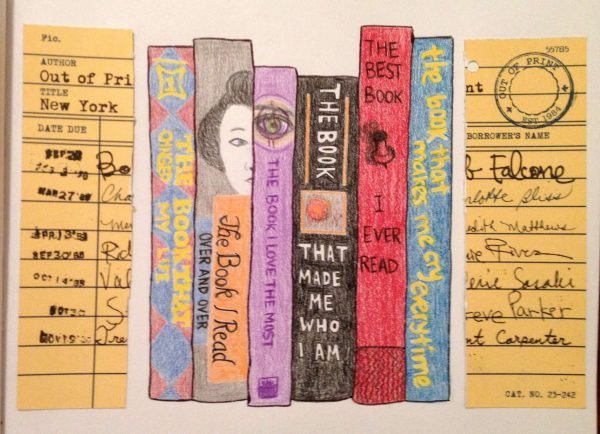 Fic.
AUTHOR
Out of Pri
TITLE
New York
DATE DUE
Bo
MAR 27 '89
THE BOOK THAT
MY LIFE
The Book I Read
OVER AND OVER
THE BOOK I LOVE THE MOST
THE BOOK
THAT
MADE
ME
WHO
I AM
THE
BEST
BOOK
I
EVER
READ
the book that
makes me cry everytime
55785
nt
OUT OF PRINT
EST 1984
BORROWER'S NAME
b Falcone
rlotte Bliss
edith Matthews
Rivera
lerie Sasaki
teve Parker
nt Carpenter
CAT. NO. 23-242